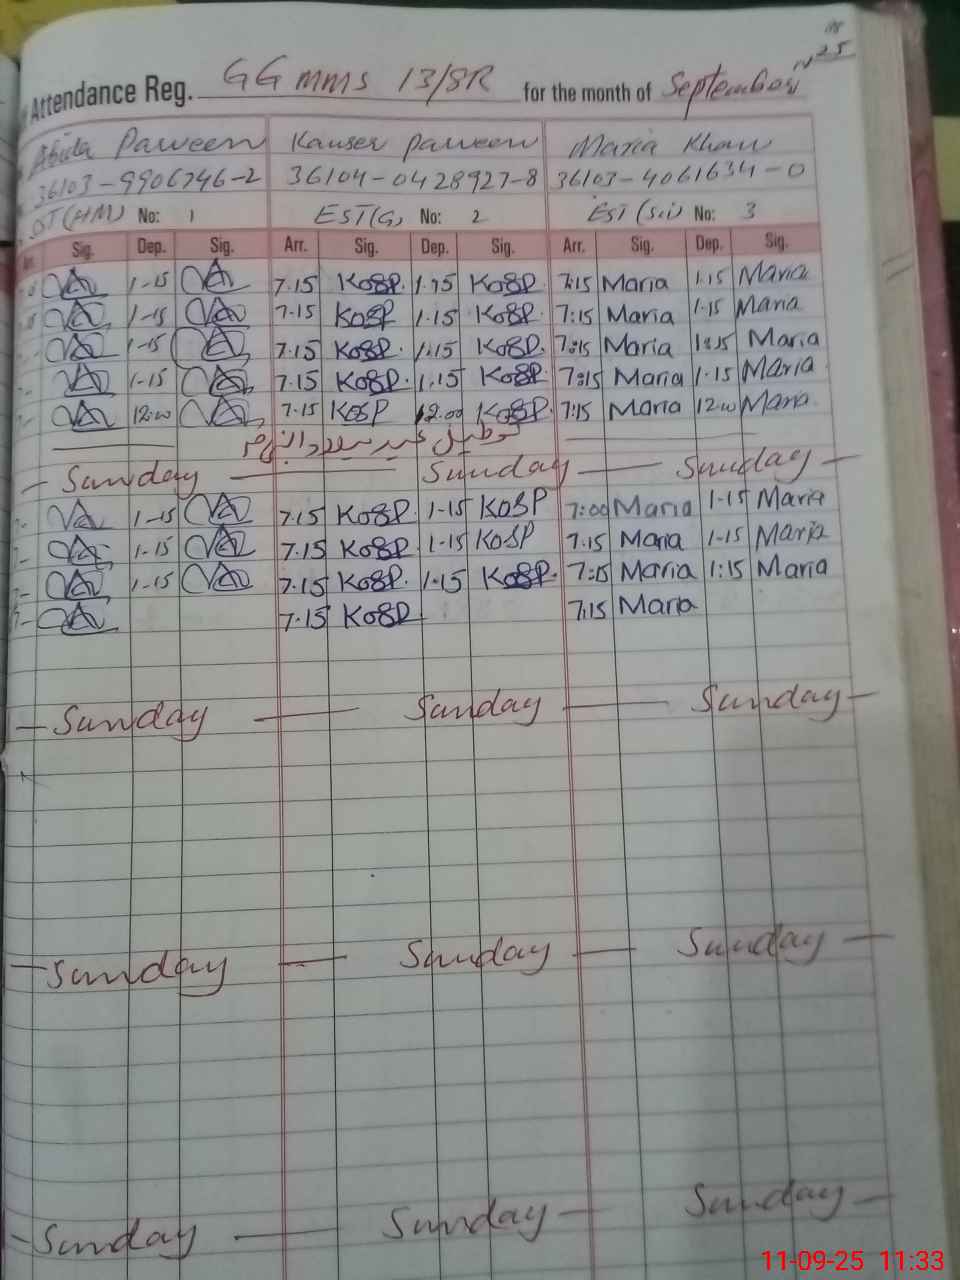 25
Attendance Reg. GGMMS 13/8R for the month of September
Abida Parveen Kauser Parveen Maria Khan
36103-9906746-2 36104-0428927-8 36103-4061634-0
EST(G) EST (Sci)
No: 1 No: 2 No: 3
Sig. Dep. Sig. Arr. Sig. Dep. Sig. Arr. Sig. Dep. Sig.
1-15 7.15 KOSP. 1.15 KOSP 7:15 Maria 1.15 Maria
1-15 7-15 KOSP 1.15 KOSP. 7:15 Maria 1-15 Maria
1-15 7.15 KOSP. 1.15 KOSP. 7:15 Maria 1:15 Maria
1-15 7.15 KOSP. 1.15 KOSP. 7:15 Maria 1-15 Maria
12:00 7-15 KOSP 12.00 KOSP. 7:15 Maria 12:00 Maria
تعطیل عید میلاد النبی
Sunday Sunday Sunday
1-15 7.15 KOSP. 1-15 KOSP 7:00 Maria 1-15 Maria
1-15 7.15 KOSP 1-15 KOSP 7.15 Maria 1-15 Maria
1-15 7.15 KOSP. 1.15 KOSP. 7:15 Maria 1:15 Maria
7-15 KOSP 7:15 Maria
Sunday Sunday Sunday
Sunday Sunday Sunday
Sunday Sunday Sunday
11-09-25 11:33